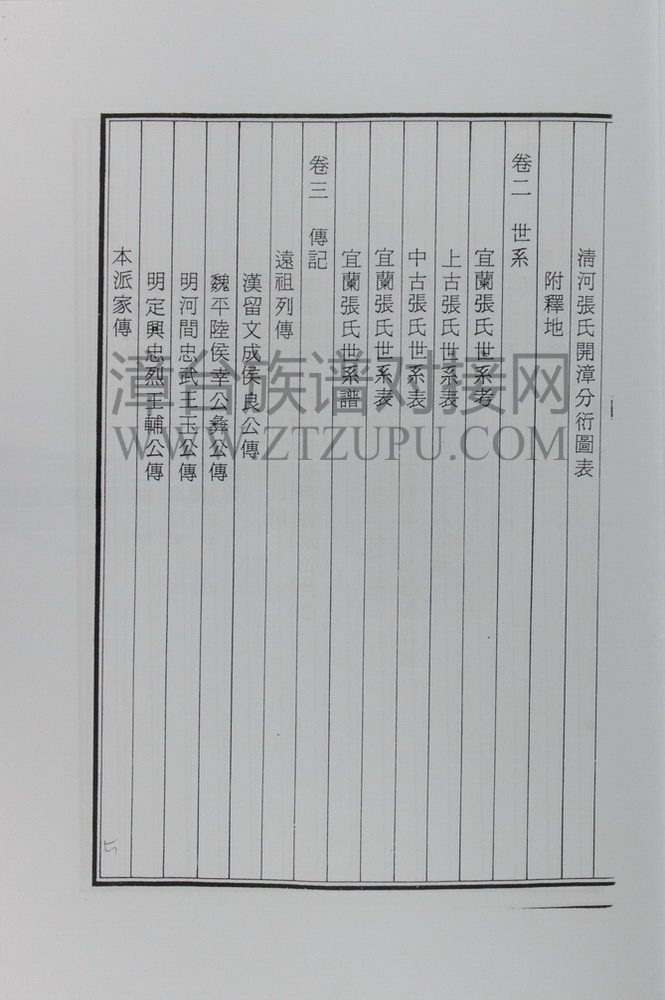 清河張氏開漳分衍圖表
附釋地
卷二 世系
宜蘭張氏世系考
上古張氏世系表
中古張氏世系表
宜蘭張氏世系表
宜蘭張氏世系譜
卷三 傳記
遠祖列傳
漢留文成侯良公傳
魏平陸侯幸公彝公傳
明河間忠武王玉公傳
明定興忠烈王輔公傳
本派家傳
漳台族谱对接网
WWW.ZTZUPU.COM